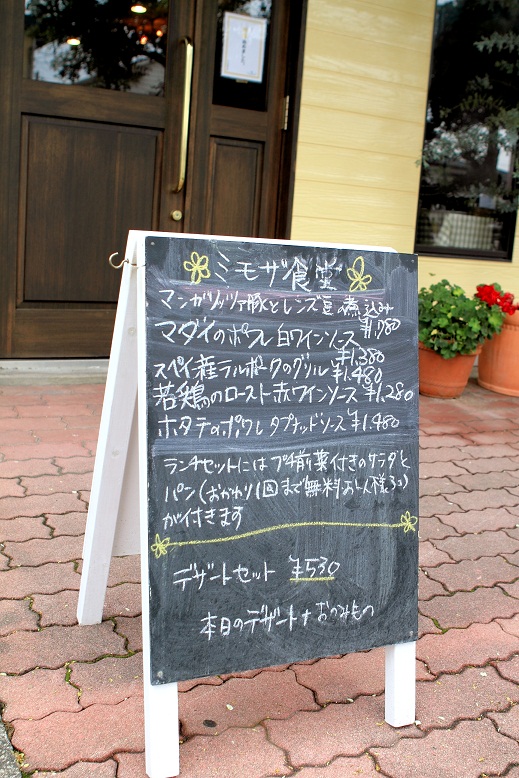 ミモザ食堂
マンガリッツァ豚とレンズ豆の煮込み
¥1,780
マダイのポワレ 白ワインソース
¥1,380
スペイン産デュロポークのグリル ¥1,480
若鶏のロースト 赤ワインソース ¥1,280
ホタテのポワレ タプナードソース ¥1,480
ランチセットにはプチ前菜付きのサラダと
パン(おかわり1回まで無料
が付きます
デザートセット ¥530
本日のデザート+おのみもの